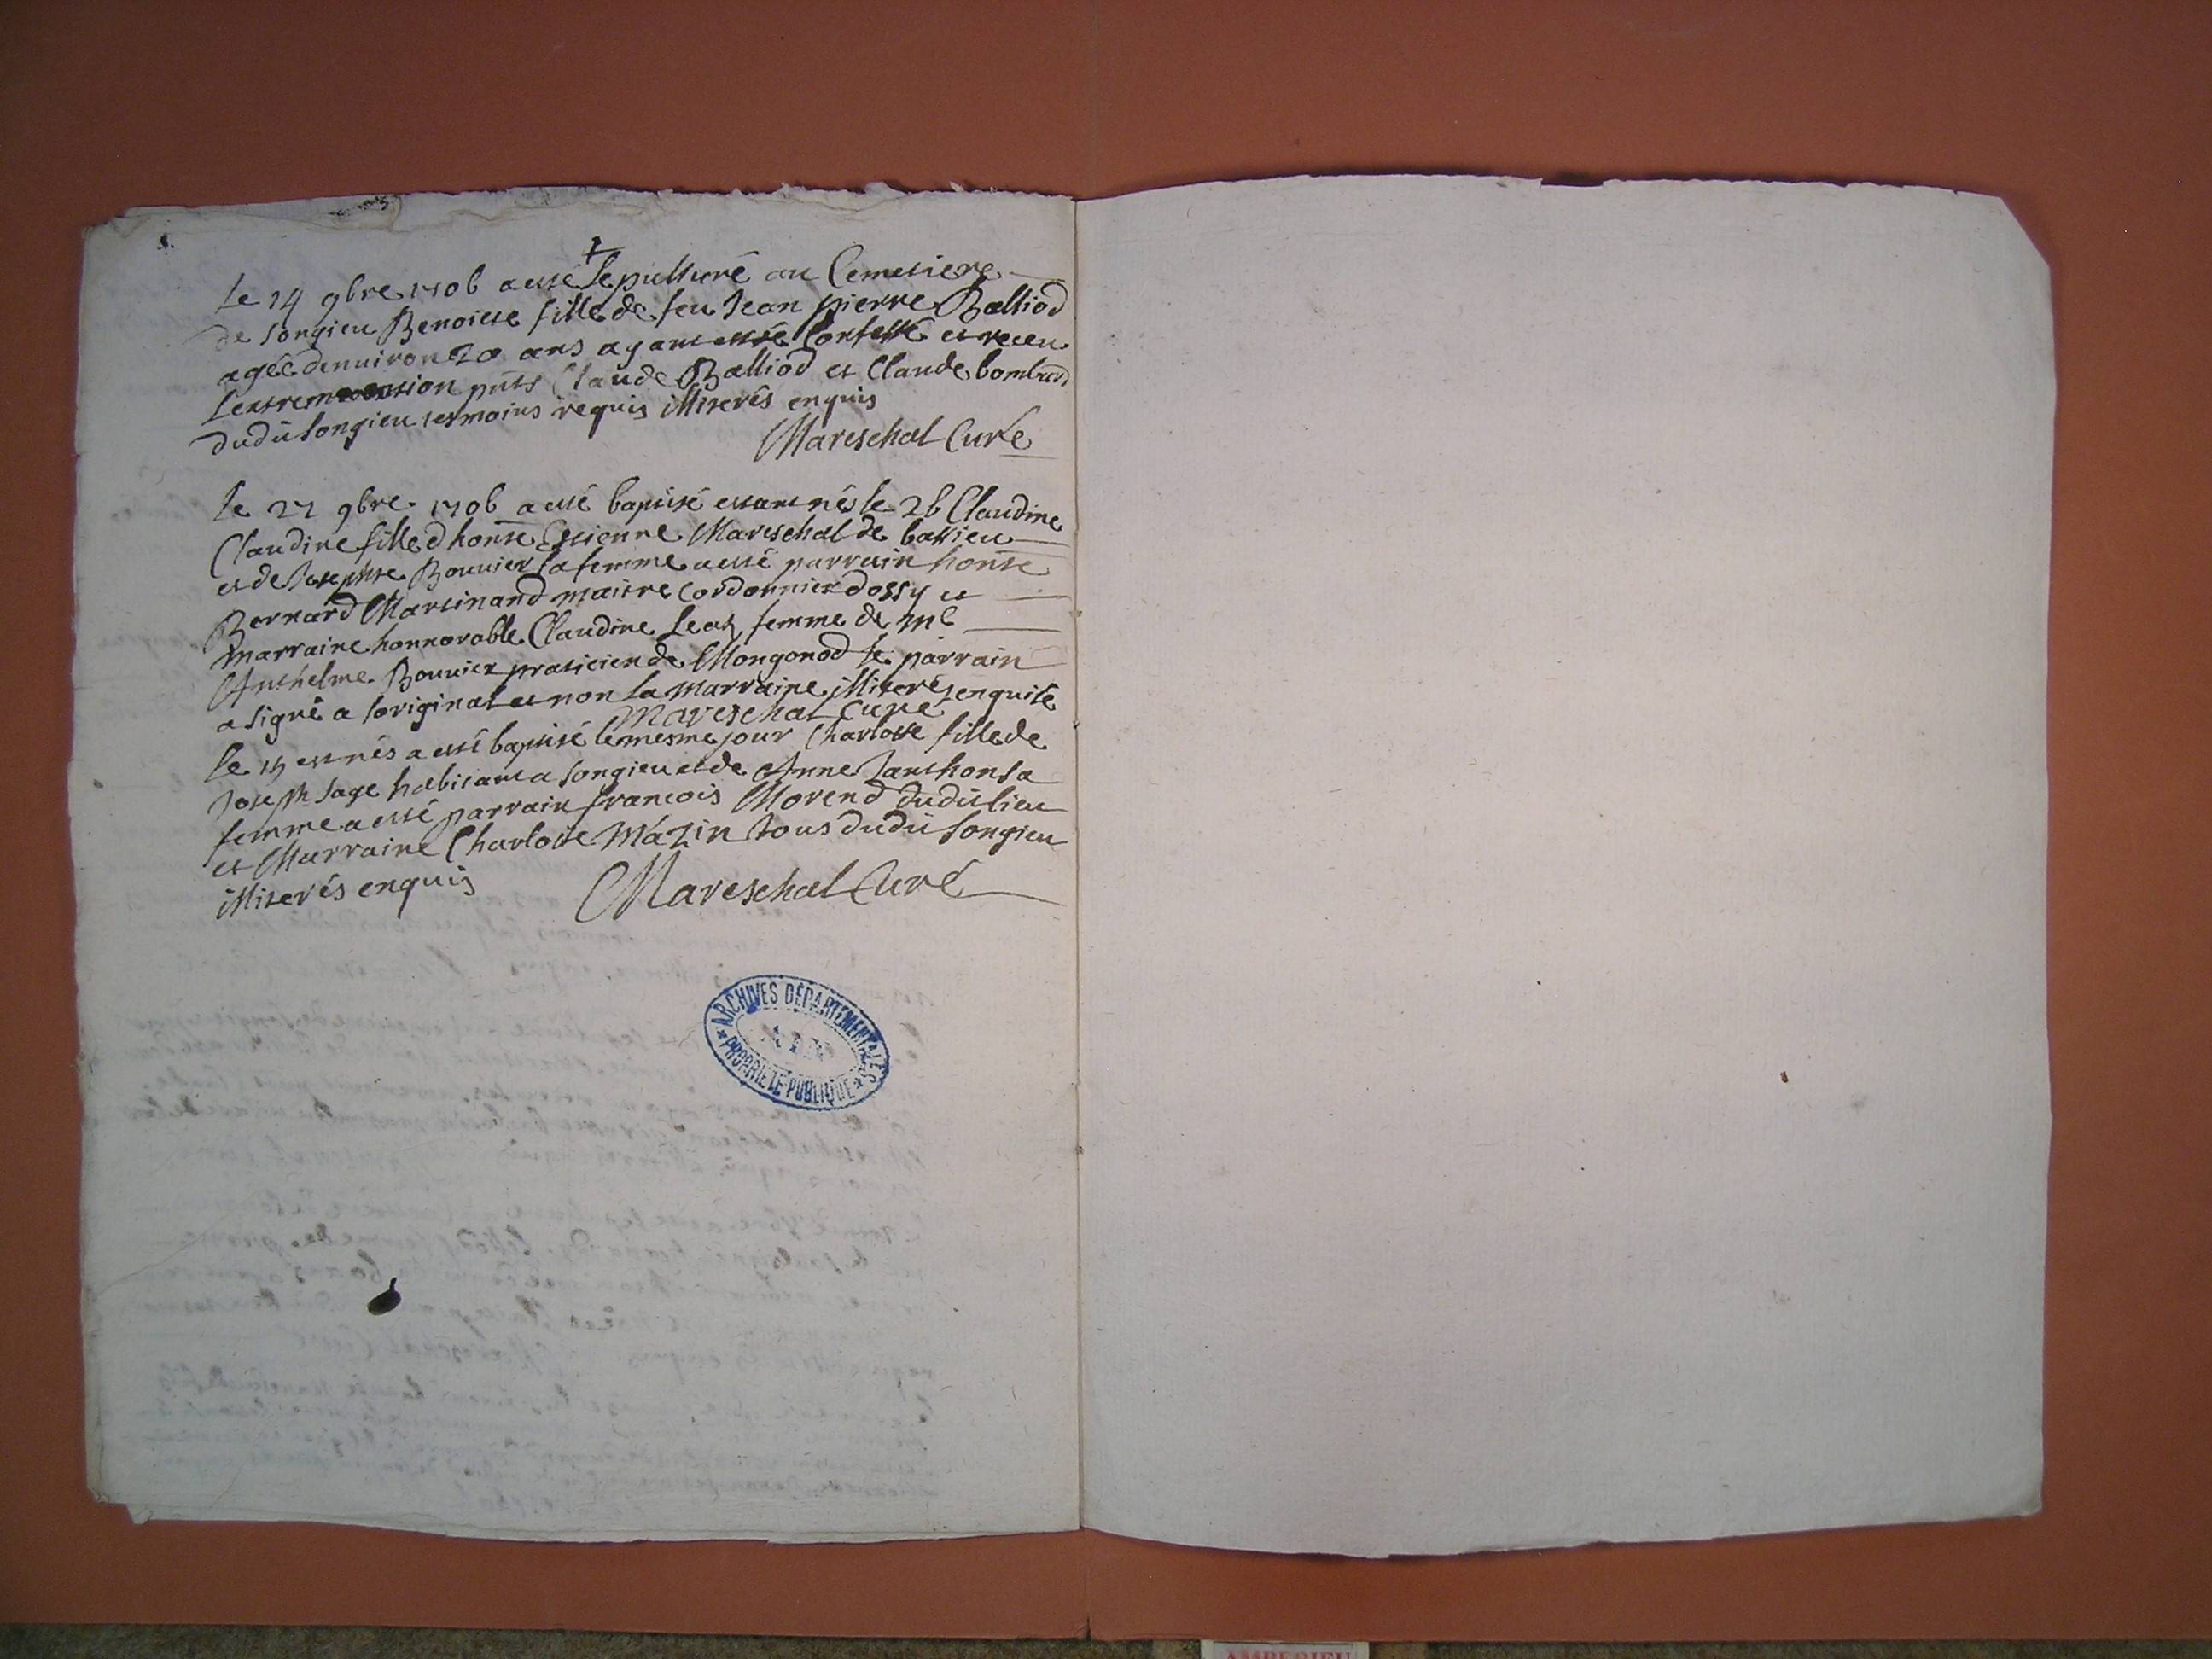 Le 14 9bre 1706 a esté sepulturé au Cemetiere
de songieu Benoiste fille de feu Jean pierre Balliod
agée denuiron 20 ans ayant esté Confessé et receu
Lextremeontion pnts Claude Balliod et Claude bombard
dudit songieu tesmoins requis illiterés enquis
Mareschal Curé
Le 27 9bre 1706 a esté baptisé estant nés le 26 Claudine
Claudine fille dhonte Estienne Mareschal de bassieu
et de Josephte Bouuier sa femme a esté parrain honte
Bernard Martinand maitre cordonnier dossy et
marraine honnorable Claudine femme de me
Anthelme Bouuier praticien de Mongonod le parrain
a signé a loriginal et non la marraine illiterés enquise
Mareschal Curé
Le 15 est nés a esté baptisé le mesme jour Charlotte fille de
Joseph sage habitant a songieu et de Anne Janthon sa
femme a esté parrain francois Morend dudit lieu
et Marraine Charlotte Mazin tous dudit songieu
illiterés enquis
Mareschal Curé
ARCHIVES DÉPARTEMENTALES
PROPRIÉTÉ PUBLIQUE